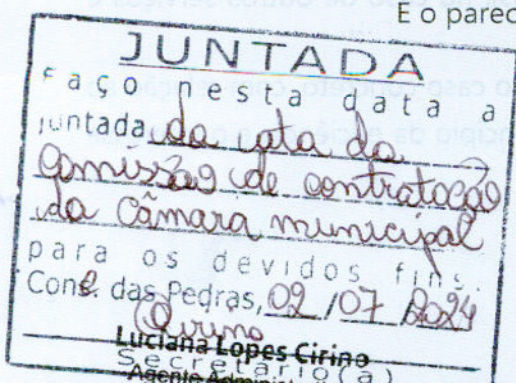 É o parec
JUNTADA
Faço nesta data a
juntada da ata da
Comissão de contratação
da Câmara municipal
para os devidos fins.
Conc. das Pedras, 02 / 07 / 2024
Cirino
Luciana Lopes Cirino
Secretário(a)
Agente Administ